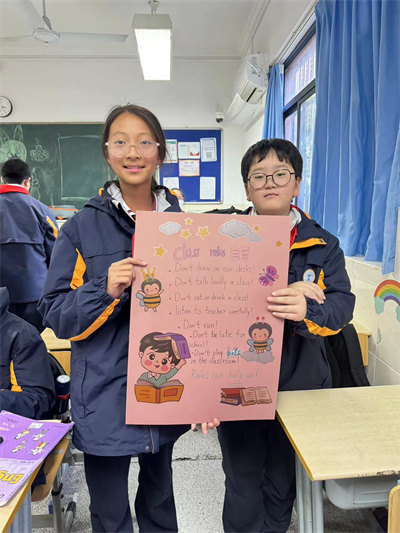 class rules
• Don't draw on our desks!
• Don't talk loudly in class!
• Don't eat or drink in class!
listen to teacher carefully!
• Don't run!
• Don't be late for
school!
• Don't play
in the classroom!
Rules can help us!